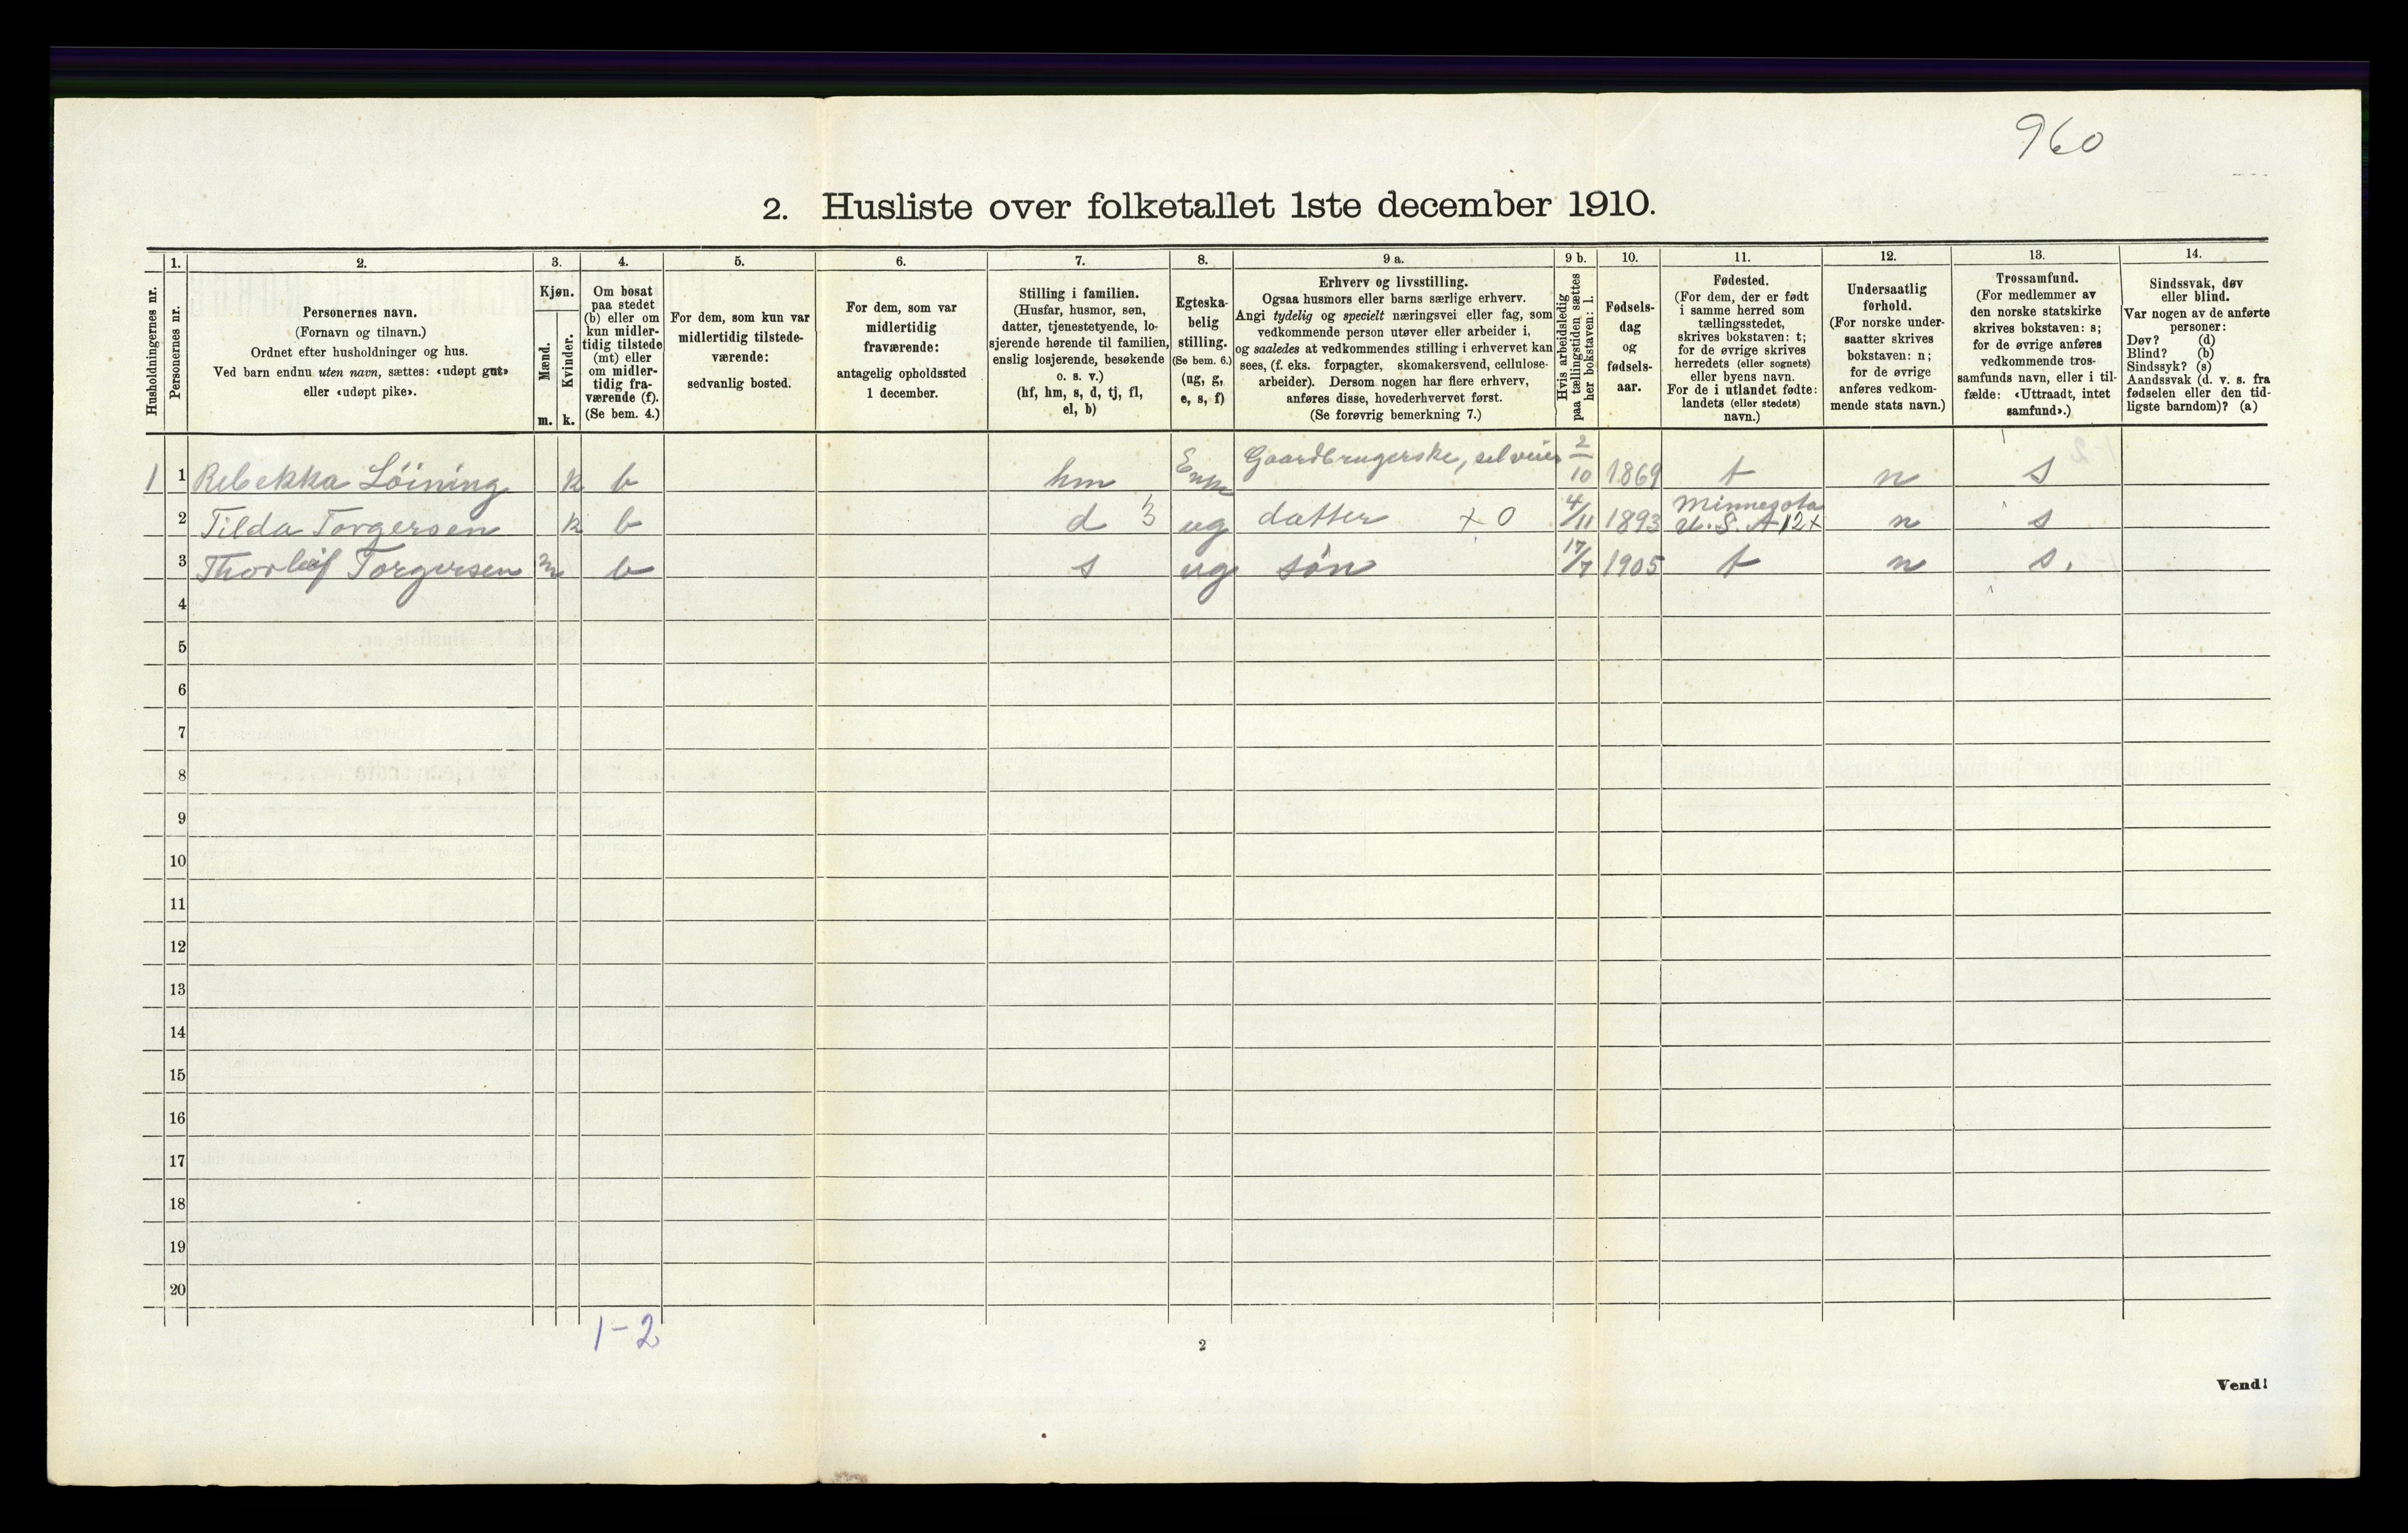 960
2. Husliste over folketallet 1ste december 1910.
Husholdningernes nr.
1.
Personernes nr.
2.
Personernes navn.
(Fornavn og tilnavn.)
Ordnet efter husholdninger og hus.
Ved barn endnu uten navn, sættes: «udøpt gut»
eller «udøpt pike».
3.
Kjøn.
Mænd.
Kvinder.
m.
k.
4.
Om bosat
paa stedet
(b) eller om
kun midler-
tidig tilstede
(mt) eller
om midler-
tidig fra-
værende (f).
(Se bem. 4.)
5.
For dem, som kun var
midlertidig tilstede-
værende:
sedvanlig bosted.
6.
For dem, som var
midlertidig
fraværende:
antagelig opholdssted
1 december.
7.
Stilling i familien.
(Husfar, husmor, søn,
datter, tjenestetyende, lo-
sjerende hørende til familien,
enslig losjerende, besøkende
o. s. v.)
(hf, hm, s, d, tj, fl,
el, b)
8.
Egteska-
belig
stilling.
(Se bem. 6.)
(ug, g,
e, s, f)
9 a.
Erhverv og livsstilling.
Ogsaa husmors eller barns særlige erhverv.
Angi tydelig og specielt næringsvei eller fag, som
vedkommende person utøver eller arbeider i,
og saaledes at vedkommendes stilling i erhvervet kan
sees, (f. eks. forpagter, skomakersvend, cellulose-
arbeider). Dersom nogen har flere erhverv,
anføres disse, hovederhvervet først.
(Se forøvrig bemerkning 7.)
9 b.
Hvis arbeidsledig
paa tællingstiden sættes
her bokstaven: l.
10.
Fødsels-
dag
og
fødsels-
aar.
11.
Fødested.
(For dem, der er født
i samme herred som
tællingsstedet,
skrives bokstaven: t;
for de øvrige skrives
herredets (eller sognets)
eller byens navn.
For de i utlandet fødte:
landets (eller stedets)
navn.)
12.
Undersaatlig
forhold.
(For norske under-
saatter skrives
bokstaven: n;
for de øvrige
anføres vedkom-
mende stats navn.)
13.
Trossamfund.
(For medlemmer av
den norske statskirke
skrives bokstaven: s;
for de øvrige anføres
vedkommende tros-
samfunds navn, eller i til-
fælde: «Uttraadt, intet
samfund».)
14.
Sindssvak, døv
eller blind.
Var nogen av de anførte
personer:
Døv? (d)
Blind? (b)
Sindssyk? (s)
Aandssvak (d. v. s. fra
fødselen eller den tid-
ligste barndom)? (a)
1 1 Rebekka Löining k b hm Enke Gaardbrugerske, selveier 2/10 1869 t n s
2 Tilda Torgersen k b d 3 ug datter x 0 4/11 1893 Minnesota U. S. A 12x n s
3 Thorleif Torgersen m b s ug sön 17/7 1905 t n s.
4
5
6
7
8
9
10
11
12
13
14
15
16
17
18
19
20
1-2
2
Vend!